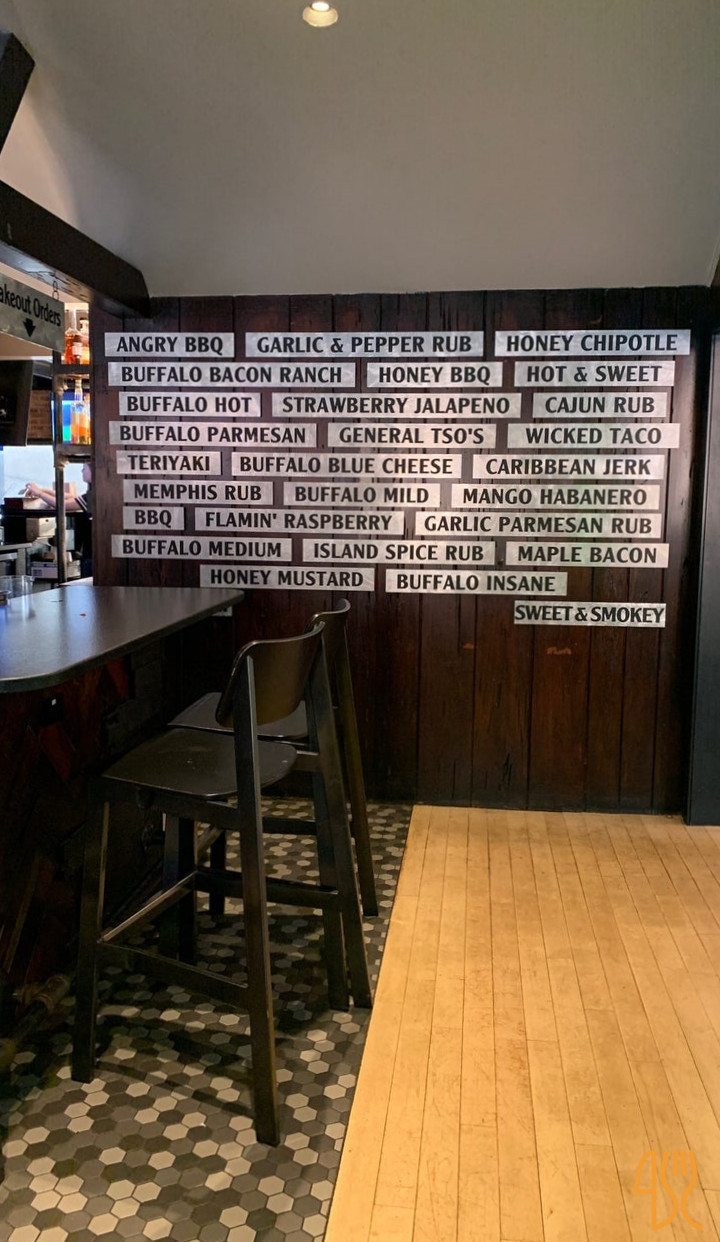 akeout Orders
ANGRY BBQ GARLIC & PEPPER RUB HONEY CHIPOTLE
BUFFALO BACON RANCH HONEY BBQ HOT & SWEET
BUFFALO HOT STRAWBERRY JALAPENO CAJUN RUB
BUFFALO PARMESAN GENERAL TSO'S WICKED TACO
TERIYAKI BUFFALO BLUE CHEESE CARIBBEAN JERK
MEMPHIS RUB BUFFALO MILD MANGO HABANERO
BBQ FLAMIN' RASPBERRY GARLIC PARMESAN RUB
BUFFALO MEDIUM ISLAND SPICE RUB MAPLE BACON
HONEY MUSTARD BUFFALO INSANE
SWEET & SMOKEY